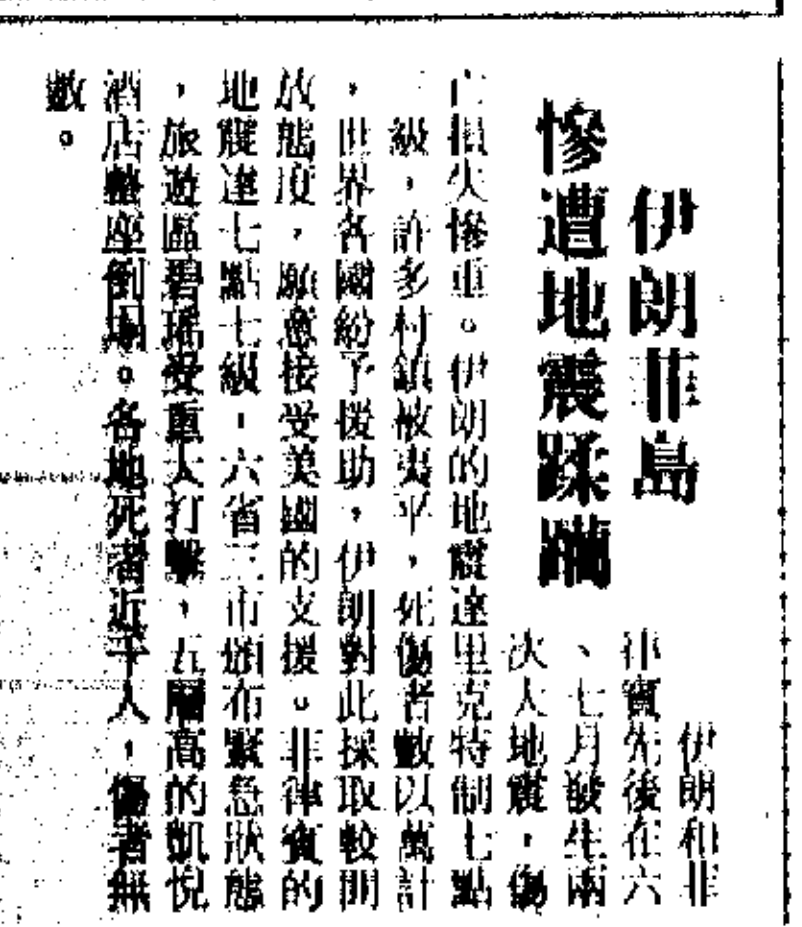 伊朗菲島
慘遭地震蹂躪
伊朗和菲
律賓先後在六
、七月發生兩
次大地震，傷
亡損失慘重。伊朗的地震達里克特制七點
三級，許多村鎮被夷平，死傷者數以萬計
，世界各國紛予援助，伊朗對此採取較開
放態度，願意接受美國的支援。菲律賓的
地震達七點七級，六省三市頒布緊急狀態
，旅遊區碧瑤受重大打擊，五層高的凱悅
酒店整座倒塌。各地死者近千人，傷者無
數。